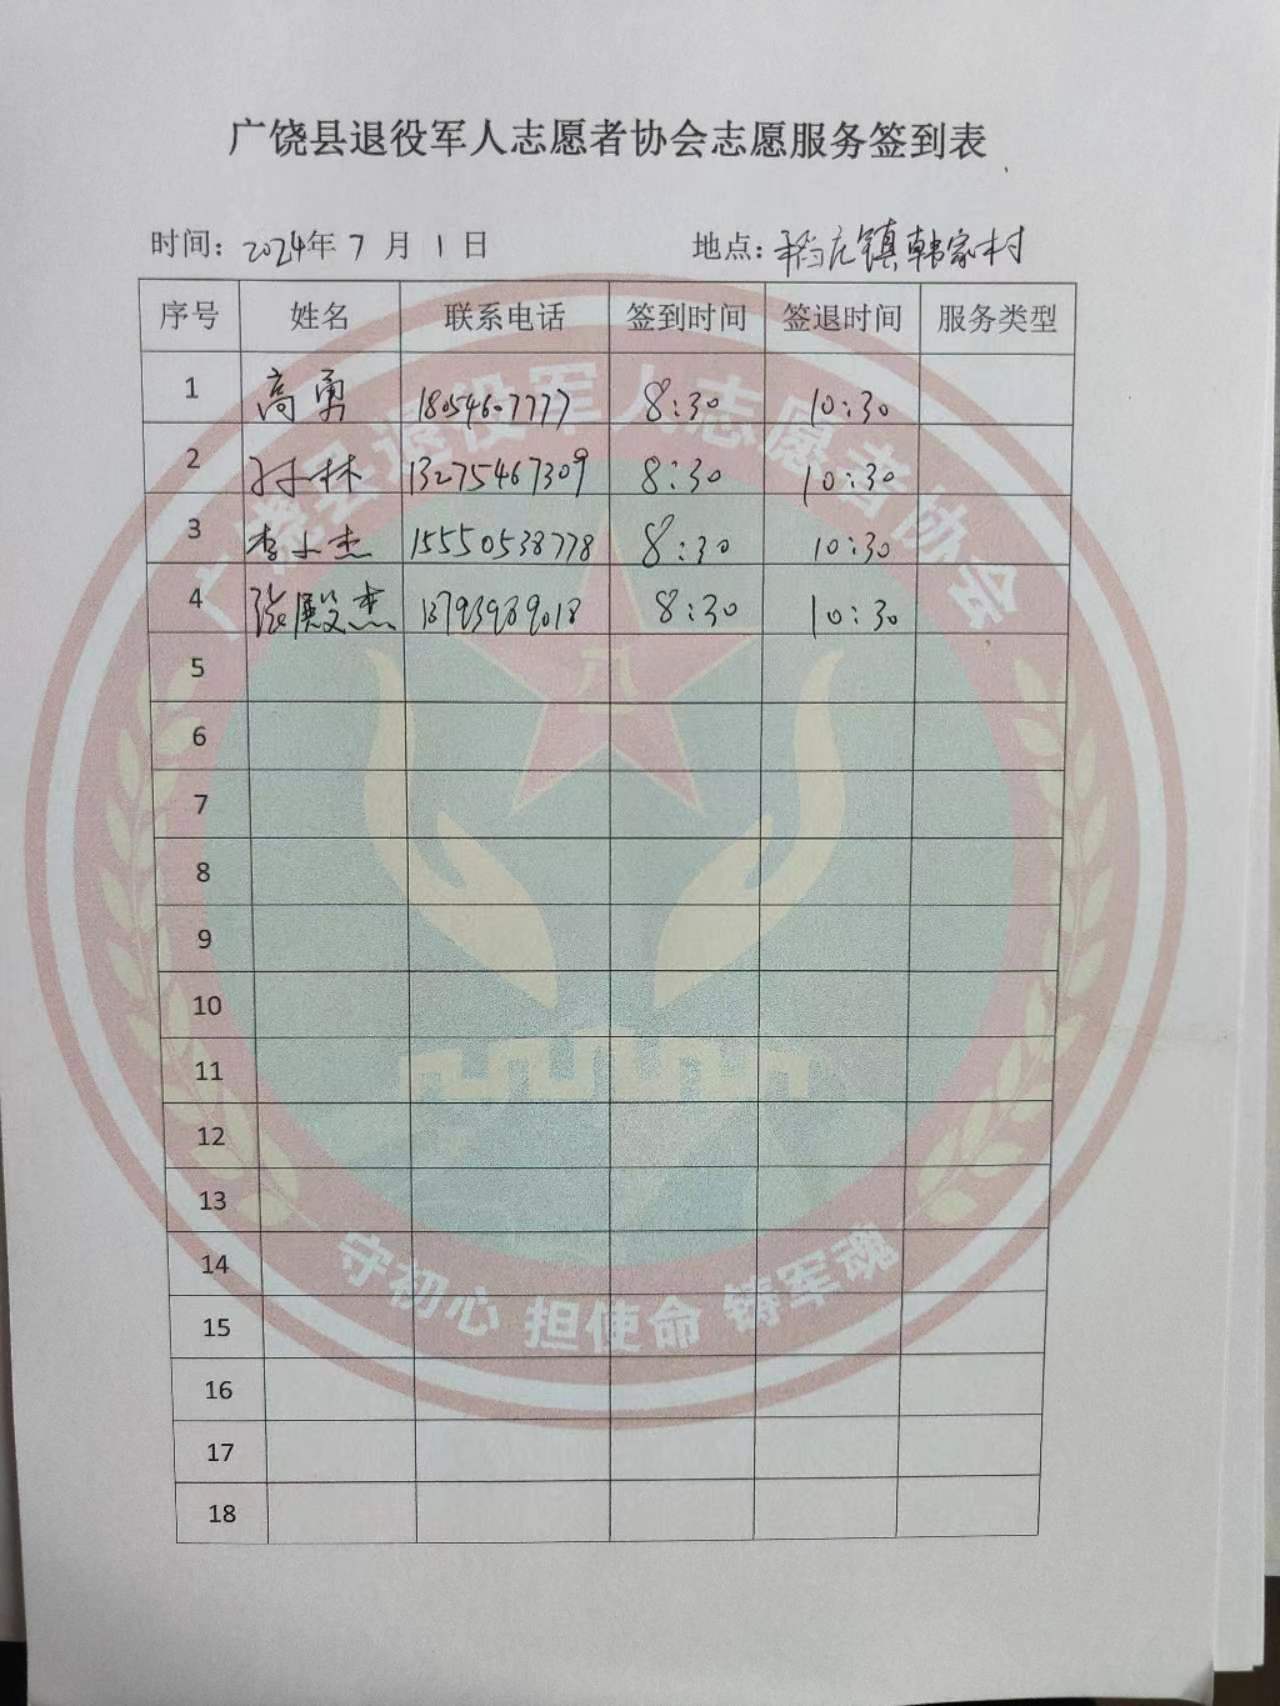 广饶县退役军人志愿者协会志愿服务签到表
时间：2024年 7 月 1 日 地点：稻庄镇韩家村
序号 姓名 联系电话 签到时间 签退时间 服务类型
1 高勇 18054607777 8:30 10:30
2 孙林 13275467309 8:30 10:30
3 李小杰 15550538778 8:30 10:30
4 张殿杰 13793989018 8:30 10:30
5
6
7
8
9
10
11
12
13
14
15
16
17
18
广饶县退役军人志愿者协会
八一
守初心 担使命 铸军魂